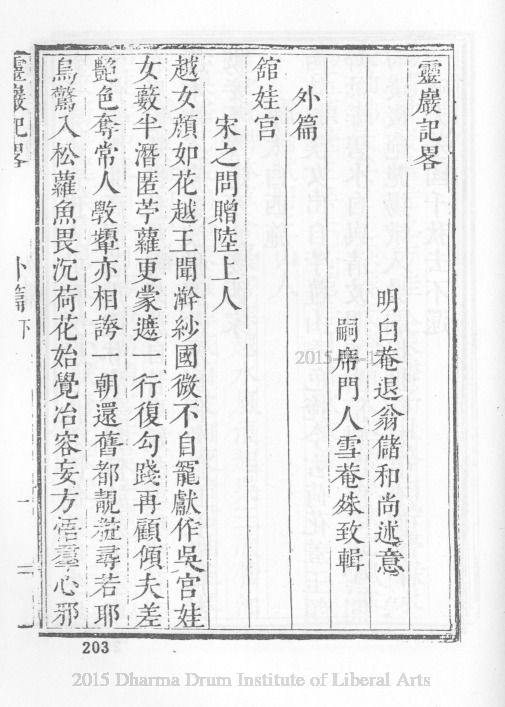 靈巖記畧
明白菴退翁儲和尚述意
嗣席門人雪菴殊致輯
外篇
舘娃宫
宋之問贈陸上人
越女顔如花越王聞澣紗國微不自寵獻作吳宫娃
女藪半潛匿苧蘿更蒙遮一行復勾踐再顧傾夫差
艷色奪常人斆顰亦相誇一朝還舊都靚粧尋若耶
鳥驚入松蘿魚畏沉荷花始覺冶容妄方悟羣心邪
靈巖記畧
外篇下
一
203
2015 Dharma Drum Institute of Liberal Arts